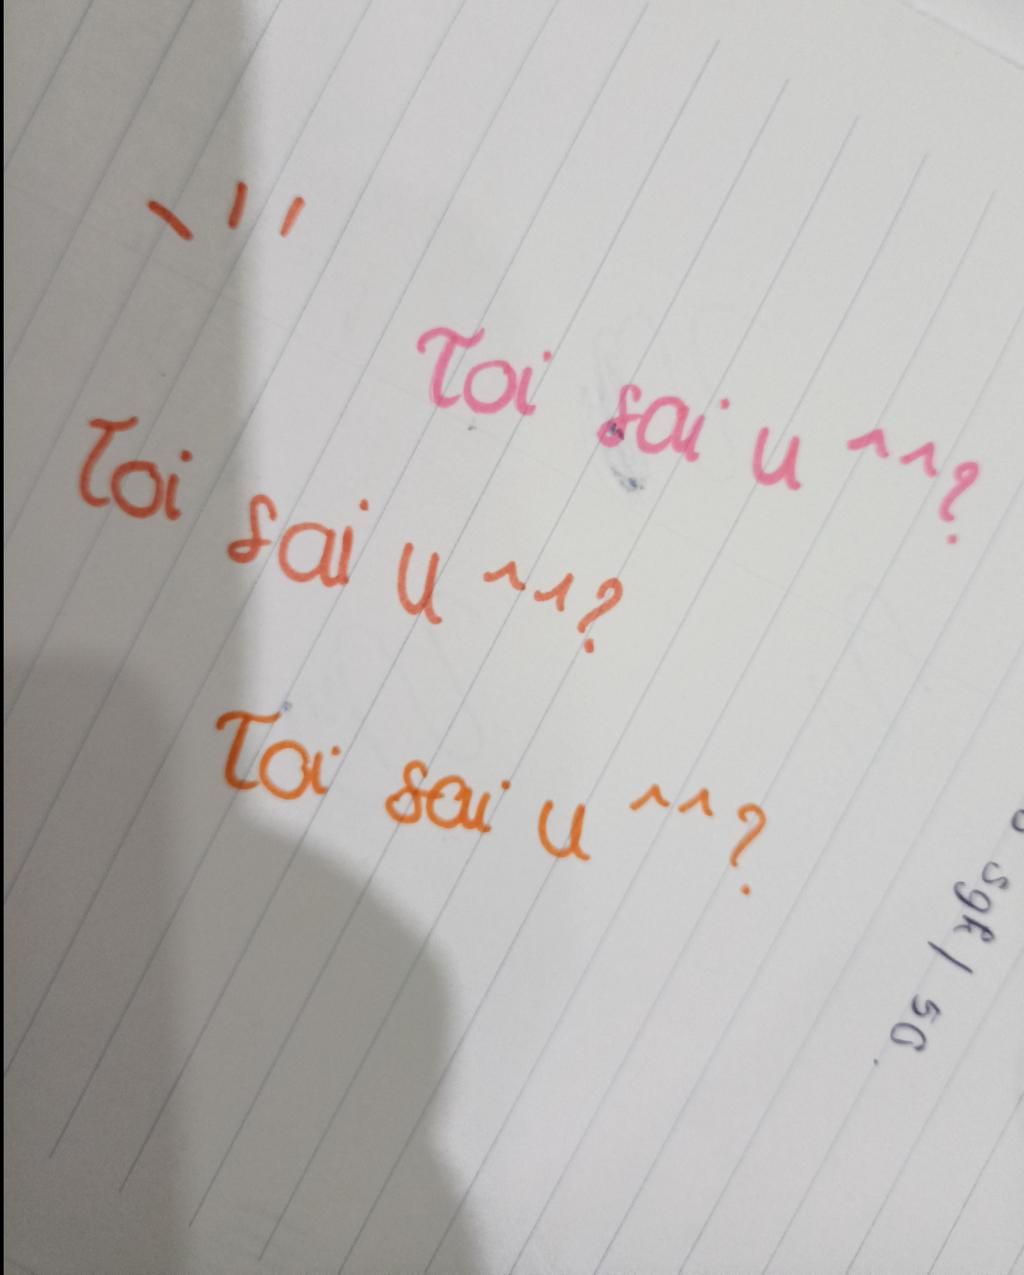 Toi sai u ^^?
Toi sai u ^^?
Toi sai u ^^?
sgk/50.